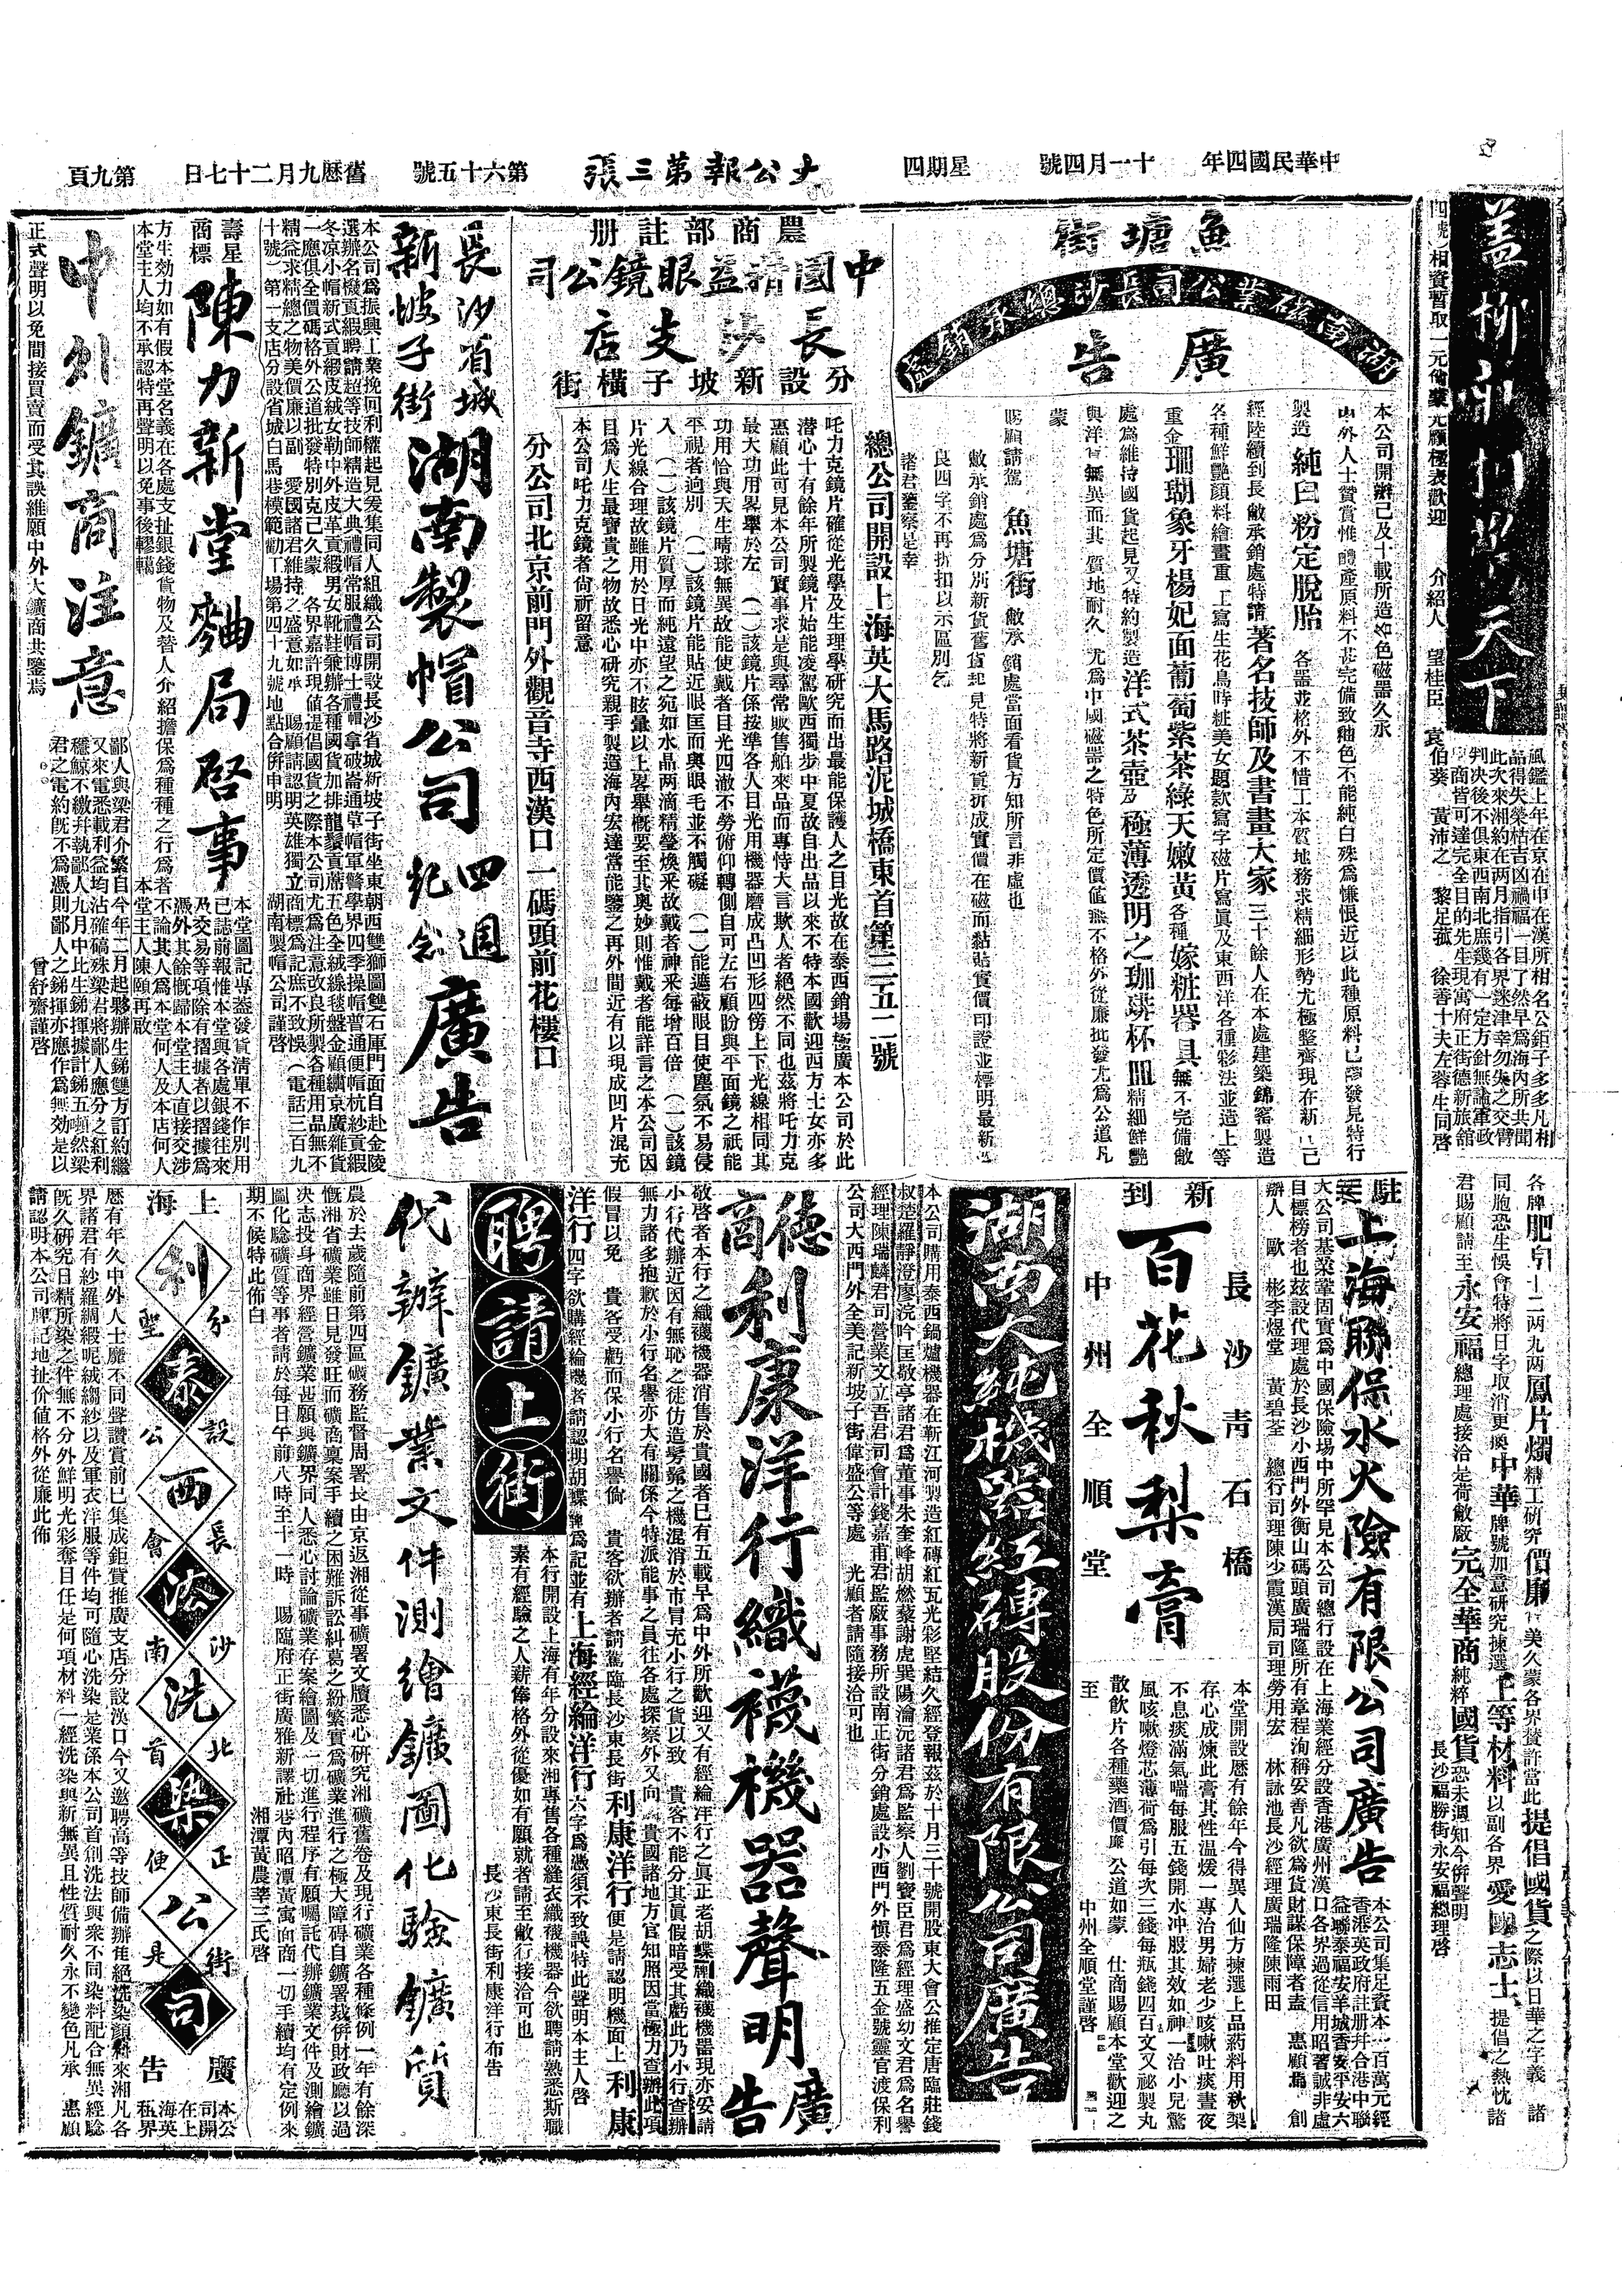 中華民國四年 十一月四號 星期四 大公報第三張 第六十五號 舊曆九月二十七日 第九頁
風鑑上年在京在申在漢所相名公鉅子多多凡相
品得失榮枯吉凶禍福一目了然早爲海內所共聞
判決後不俱東西南北庶幾有一定方針無論軍政
介紹人 望桂臣 袁伯葵 黃沛之 黎足菰 徐善十夫左容生同啓
君賜顧請至永安福總理處接洽是荷敝廠完全華商純粹國貨恐未週知今併聲明
長沙福勝街永安福總理啓
魚塘街
湖南磁業公司長沙總承銷處
廣告
各種鮮艷顏料繪畫重工寫生花鳥時粧美女題款寫字磁片寫眞及東西洋各種彩法並造上等
重金珊瑚象牙楊妃面葡萄紫茶綠天嫩黃各種嫁粧器具無不完備敝
蒙
賜顧請駕 魚塘街 敝承銷處當面看貨方知所言非虛也
良四字不再折扣以示區別乞
諸君鑒察是幸
農商部註册
中國精益眼鏡公司
長沙支店
分設新坡子橫街
總公司開設上海英大馬路泥城橋東首第三五二號
吒力克鏡片確從光學及生理學研究而出最能保護人之目光故在泰西銷場極廣本公司於此
潛心十有餘年所製鏡片始能凌駕歐西獨步中夏故自出品以來不特本國歡迎四方士女亦多
惠顧此可見本公司實事求是與尋常販售舶來品而專恃大言欺人者絕然不同也茲將吒力克
最大功用畧舉於左 (一)該鏡片係按準各人目光用機器磨成凸凹形四傍上下光線相同其
功用恰與天生睛球無異故能使戴者目光四澈不勞俯仰轉側自可左右顧盼與平面鏡之祇能
平視者迥別 (一)該鏡片能貼近眼匡而與眼毛並不觸礙 (一)能遮蔽眼目使塵氛不易侵
入 (一)該鏡片質厚而純遠望之宛如水晶兩滴精瑩煥釆故戴者神釆每增百倍 (一)該鏡
片光線合理故雖用於日光中亦不眩暈以上畧舉槪要至其奧妙則惟戴者能詳言之本公司因
目爲人生最寶貴之物故悉心硏究親手製造海內宏達當能鑒之再外間近有以現成凹片混充
本公司吒力克鏡者尙祈留意
分公司北京前門外觀音寺西漢口一碼頭前花樓口
長沙省城
新坡子街
湖南製帽公司四週紀念廣告
本公司爲振興工業挽回利權起見爰集同人組織公司開設長沙省城新坡子街坐東朝西雙獅圖雙石庫門面自赴金陵
選辦名機貢緞聘請超等技師精造大典禮帽常服禮帽博士禮帽拿破崙通草帽軍警學界四季操帽普通便帽杭紗貢緞
冬凉小帽新式貢緞皮絨女勒中外皮革貢緞男女靴鞋兼辦各種國貨加排龍鬚貢蓆五色全絨綠毯盤金顧繡京廣雜貨
一應俱全價碼格外公道批發特別克己久蒙 各界嘉許現值提倡國貨之際本公司尤爲注意改良所製各種用品無不
精益求精總之物美價廉以副 愛國諸君維持之盛意如承 賜顧請認明英雄獨立商標爲記庶不致悞(電話三百九
十號)第一支店分設省城白馬巷模範勸工場第四十九號地點合併申明 湖南製帽公司謹啓
壽星商標
陳力新堂麯局啓事
本堂圖記專盖發貨清單不作別用
已誌前報惟本堂與各處銀錢往來
及交易等項除有摺據者以摺據爲
憑外其餘慨歸本堂主人直接交涉
不論其人爲本堂何人及本店何人
方生効力如有假本堂名義在各處支扯銀錢貨物及替人介紹擔保爲種種之行爲者
本堂主人均不承認特再聲明以免事後轇轕 本堂主人陳頤再啟
中外鑛商注意
鄙人與梁君介繁自今年二月起夥辦生銻雙方訂約繼
又來電悉載利益均沾確槁殊梁君將鄙人應分之紅利
君之電約旣不爲憑則鄙人之銻揮亦應作爲無効是以
正式聲明以免間接買賣而受其誤維願中外大鑛商共鑒焉 曾舒齋謹啓
駐湘
上海聯保水火險有限公司廣告
本公司集足資本一百萬元經
香港英政府註册幷合港中聯
益聯泰福安羊城香安平安六
大公司基業鞏固實爲中國保險場中所罕見本公司總行設在上海業經分設香港廣州漢口各界過從信用昭著誠非虛
目標榜者也茲設代理處於長沙小西門外衡山碼頭廣瑞隆所有章程洵稱妥善凡欲爲貨財謀保障者盍 惠顧焉 創
辦人 歐 彬李煜堂 黃碧荃 總行司理陳少霞漢局司理勞用宏 林詠池長沙經理廣瑞隆陳雨田
新到
長沙靑石橋
百花秋梨膏
中州全順堂
本堂開設歷有餘年今得異人仙方揀選上品葯料用秋梨
存心成煉此膏其性温煖一專治男婦老少咳嗽吐痰晝夜
不息痰滿氣喘每服五錢開水冲服其效如神一治小兒驚
風咳嗽燈芯薄荷爲引每次三錢每瓶錢四百文又祕製丸
散飲片各種藥酒價廉 公道如蒙 仕商賜顧本堂歡迎之
至 中州全順堂謹啓
湖南大純機器紅磚股份有限公司廣告
本公司購用泰西鍋爐機器在靳江河製造紅磚紅瓦光彩堅結久經登報茲於十月三十號開股東大會公推定唐臨莊錢
叔楚羅靜澄廖浣吟匡敬亭諸君爲董事朱奎峰胡燃藜謝虎巽陽瀹沅諸君爲監察人劉寶臣君爲經理盛幼文君爲名譽
經理陳瑞麟君司營業文立吾君司會計錢嘉甫君監廠事務所設南正街分銷處設小西門外愼泰隆五金號靈官渡保利
公司大西門外全美記新坡子街偉盛公等處 光顧者請隨接洽可也
德商
利康洋行織襪機器聲明廣告
敬啓者本行之織襪機器消售於貴國者已有五載早爲中外所歡迎又有經綸洋行之眞正老胡蝶牌織襪機器現亦妥請
小行代辦近因有無恥之徒仿造髣髴之機混消於市冒充小行之貨以致 貴客不能分其眞假暗受其虧此乃小行查辦
無力諸多抱歉於小行名譽亦大有關係今特派能事之員往各處探察外又向 貴國諸地方官知照因當極力查辦此項
假冒以免 貴客受虧而保小行名譽倘 貴客欲辦者請駕臨長沙東長街利康洋行便是請認明機面上利康
洋行四字欲購經綸機者請認明胡蝶牌爲記並有上海經綸洋行六字爲憑須不致誤特此聲明本主人啓
聘請上街
本行開設上海有年分設來湘專售各種縫衣織襪機器今欲聘請熟悉斯職
素有經驗之人薪俸格外從優如有願就者請至敝行接洽可也
長沙東長街利康洋行布告
代辦鑛業文件測繪鑛圖化驗鑛質
農於去歲隨前第四區礦務監督周署長由京返湘從事礦署文牘悉心硏究湘礦舊卷及現行礦業各種條例一年有餘深
慨湘省礦業雖日見發旺而礦商稟案手續之困難訴訟糾葛之紛繁實爲礦業進行之極大障碍自鑛署裁併財政廳以過
決志投身商界經營鑛業甚願與鑛界同人悉心討論礦業存案繪圖及一切進行程序有願囑託代辦鑛業文件及測繪鑛
圖化騐礦質等事者請於每日午前八時至十一時 賜臨府正街廣雅新譯社巷內昭潭黃寓面商一切手續均有定例來
期不候特此佈白 湘潭黃農莘三氏啓
上海
利泰西法洗染公司
分設長沙北正街
聖公會南首便是
廣告
本公司開在上海英租界
歷有年久中外人士靡不同聲讚賞前已集成鉅貲推廣支店分設漢口今又邀聘高等技師備辦隹絕洗染顏料來湘凡各
界諸君有紗羅綢緞呢絨縐紗以及軍衣洋服等件均可隨心洗染是業係本公司首創洗法與衆不同染料配合無異經驗
旣久硏究日精所染之件無不分外鮮明光彩奪目任是何項材料一經洗染與新無異且性質耐久永不變色凡承 惠顧
請認明本公司牌記地扯价値格外從廉此佈